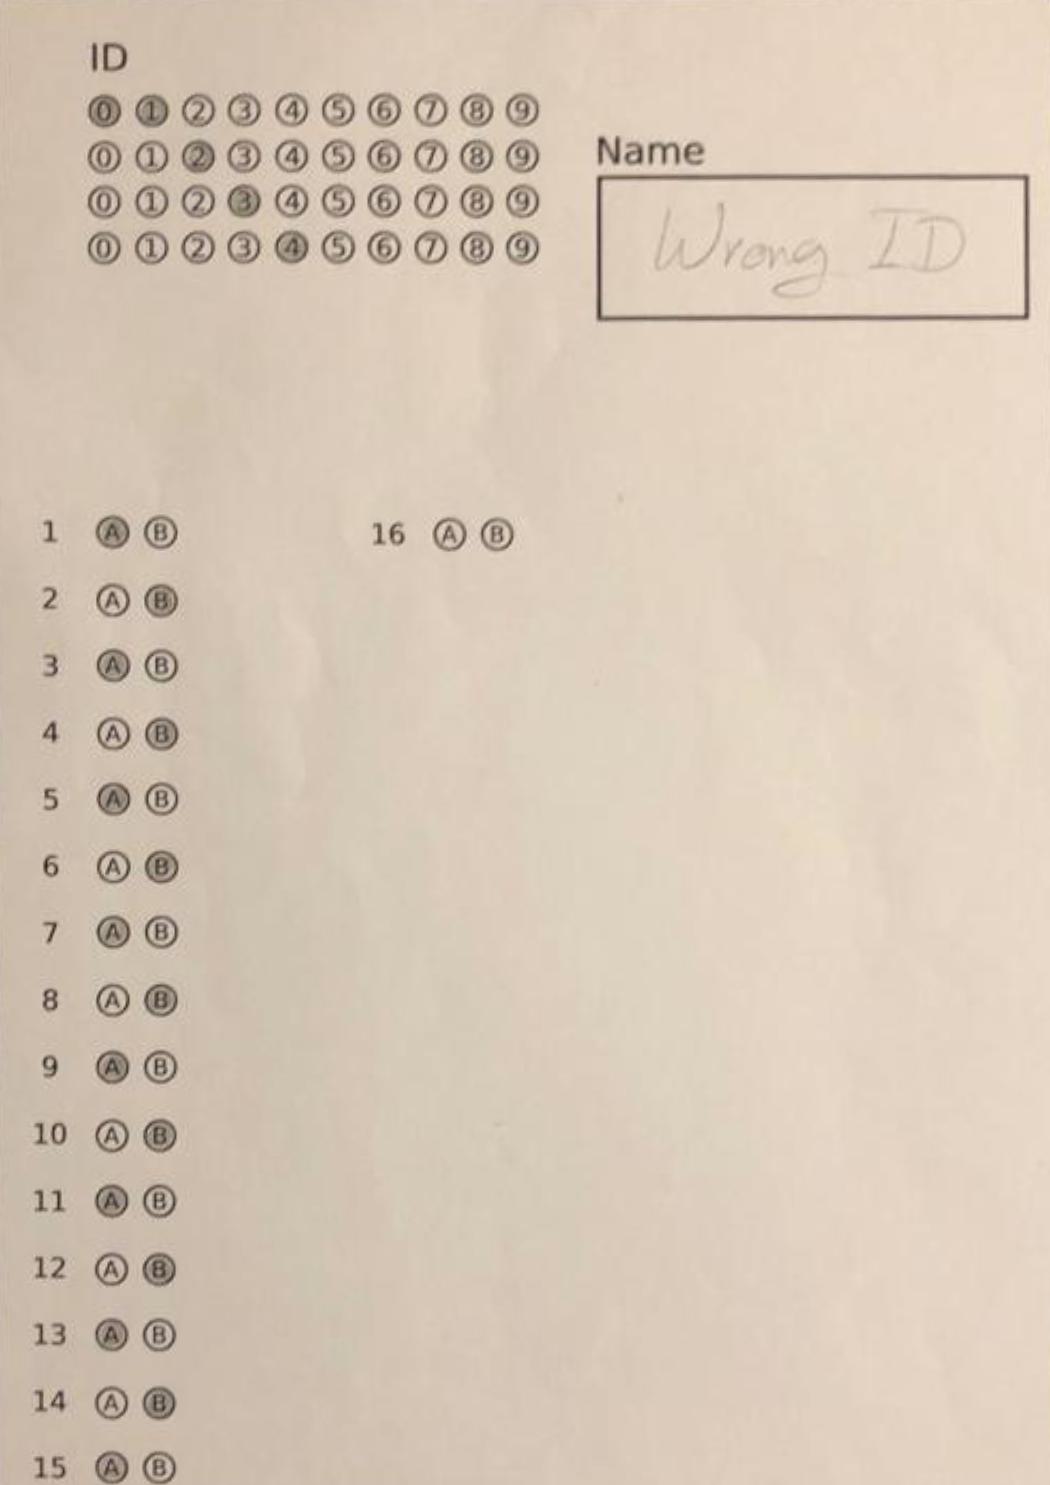 ID
0 1 2 3 4 5 6 7 8 9
0 1 2 3 4 5 6 7 8 9
0 1 2 3 4 5 6 7 8 9
0 1 2 3 4 5 6 7 8 9
Name
Wrong ID
1 A B
2 A B
3 A B
4 A B
5 A B
6 A B
7 A B
8 A B
9 A B
10 A B
11 A B
12 A B
13 A B
14 A B
15 A B
16 A B